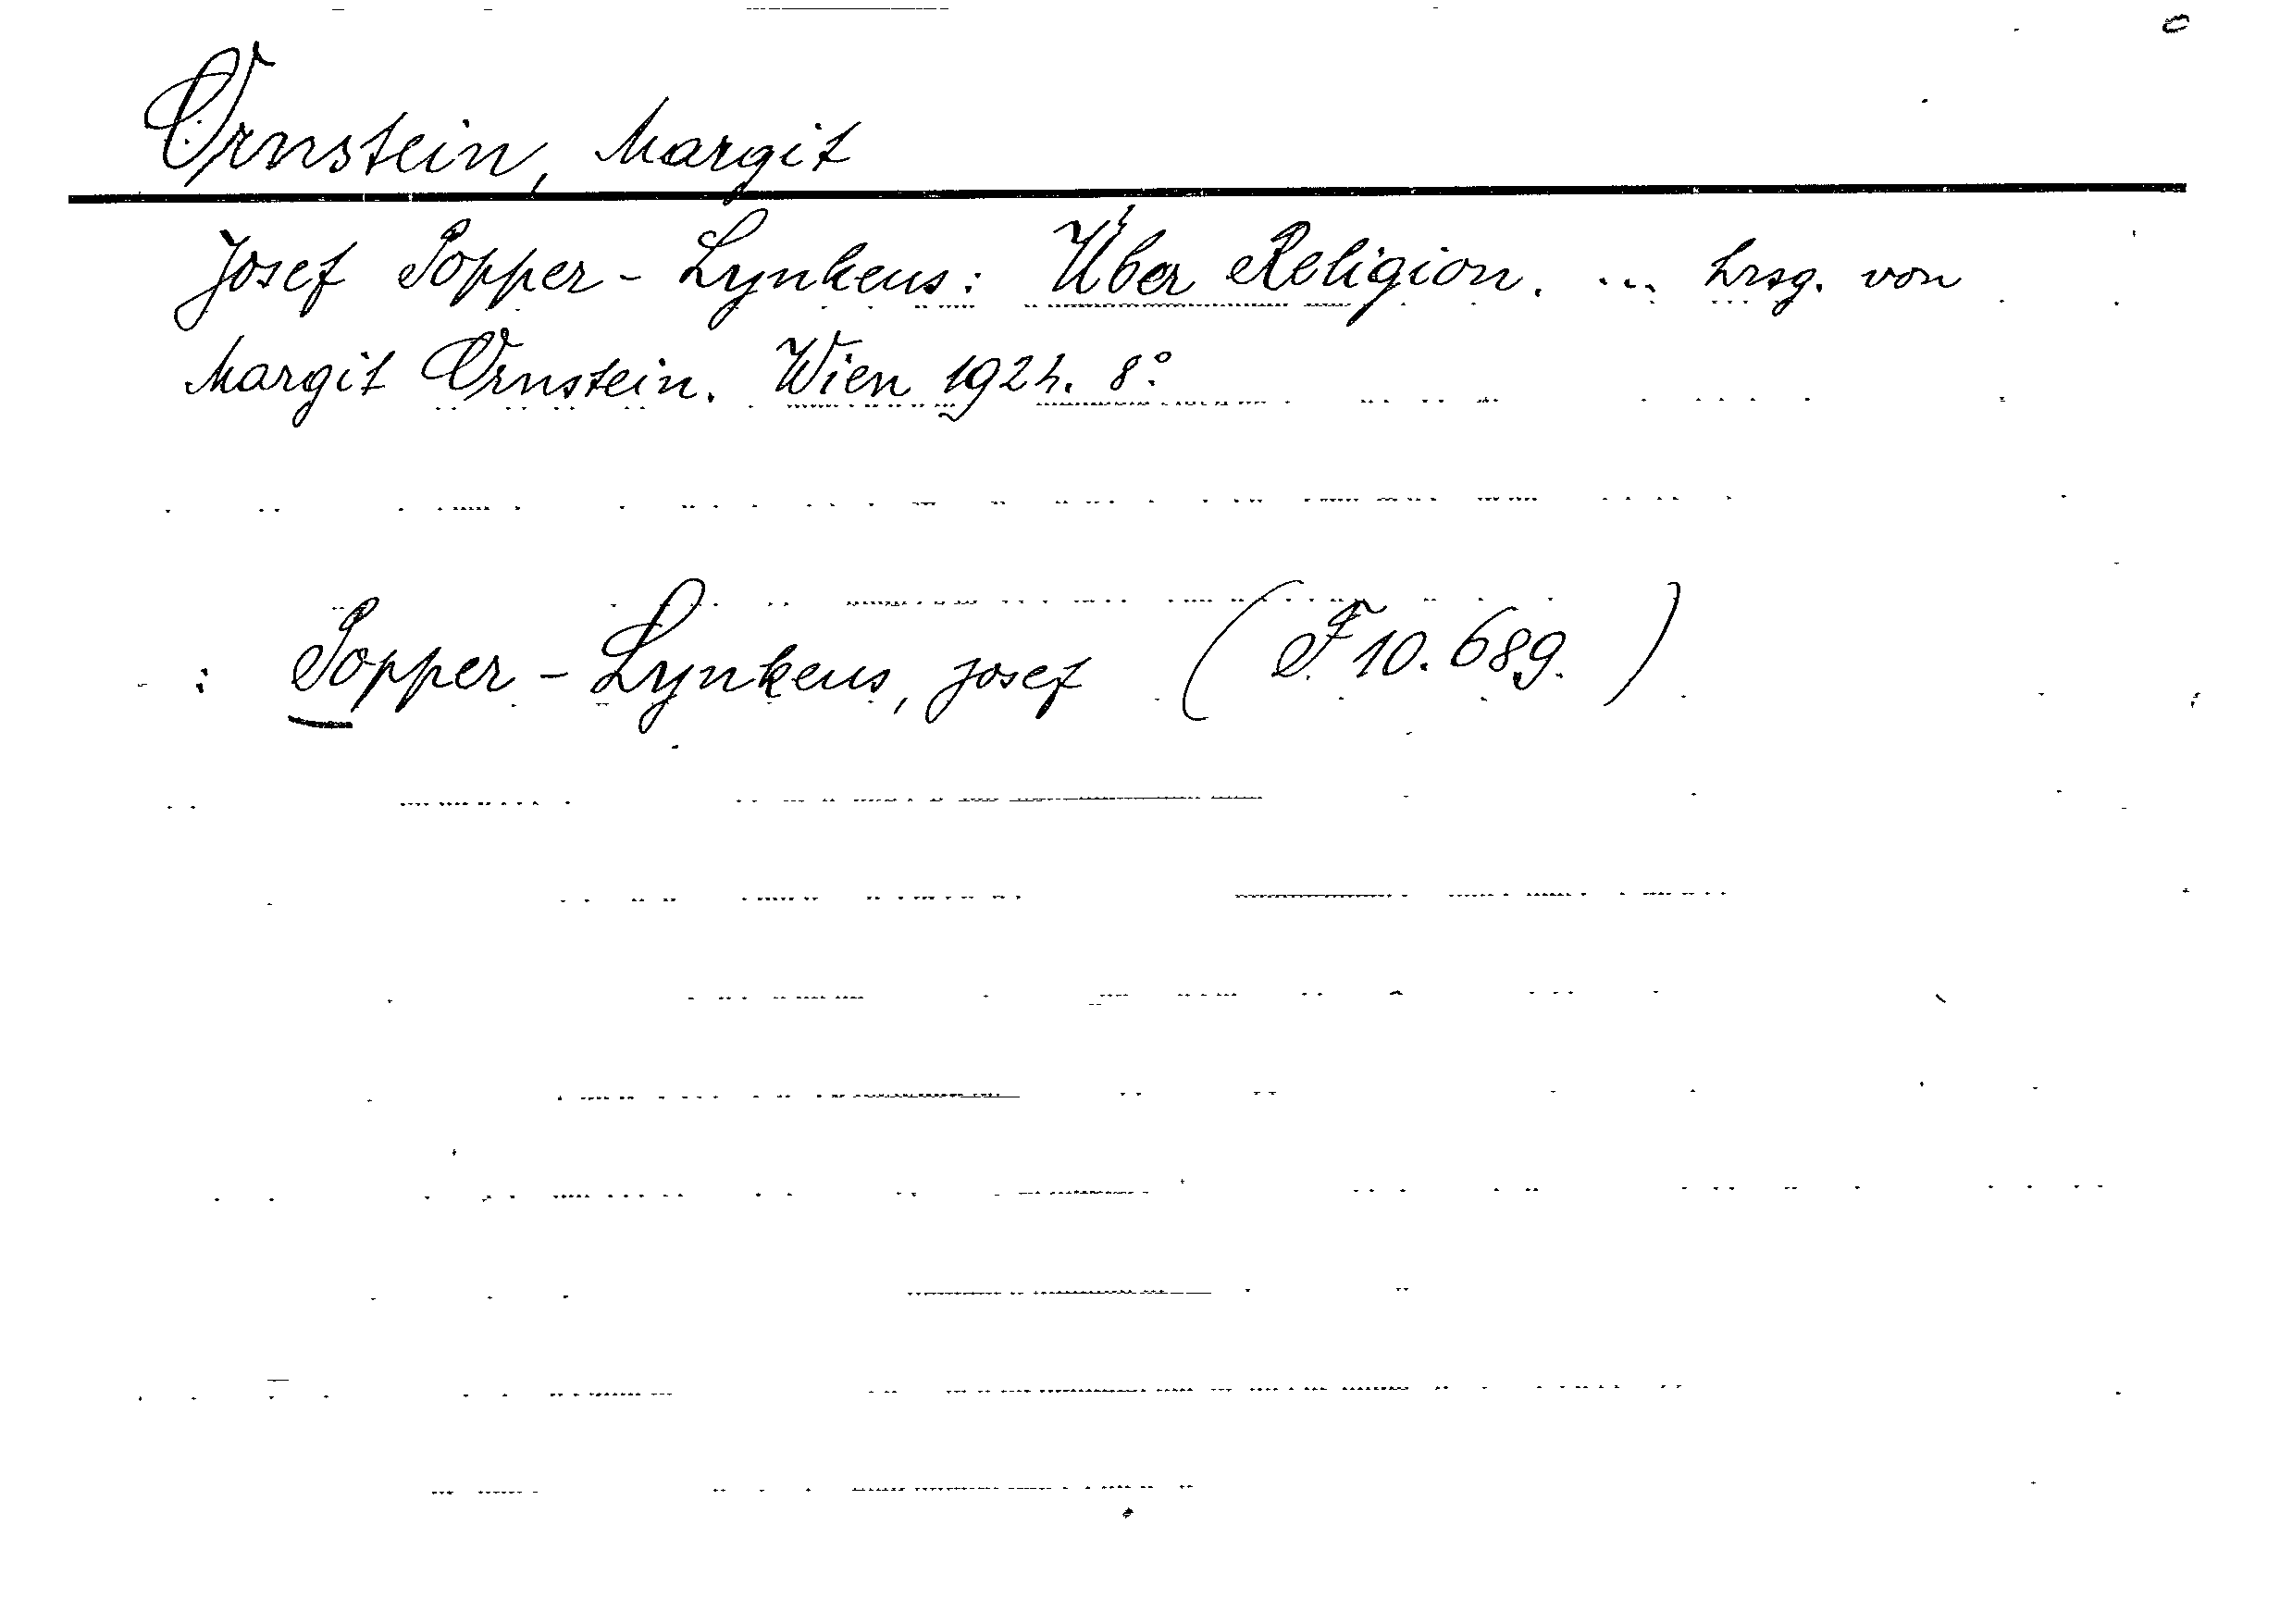 Ornstein, Margit
Josef Popper-Lynkeus: Über Religion. ... hrsg. von
Margit Ornstein. Wien 1924. 8°.
: Popper-Lynkeus, Josef (F 10.689.)